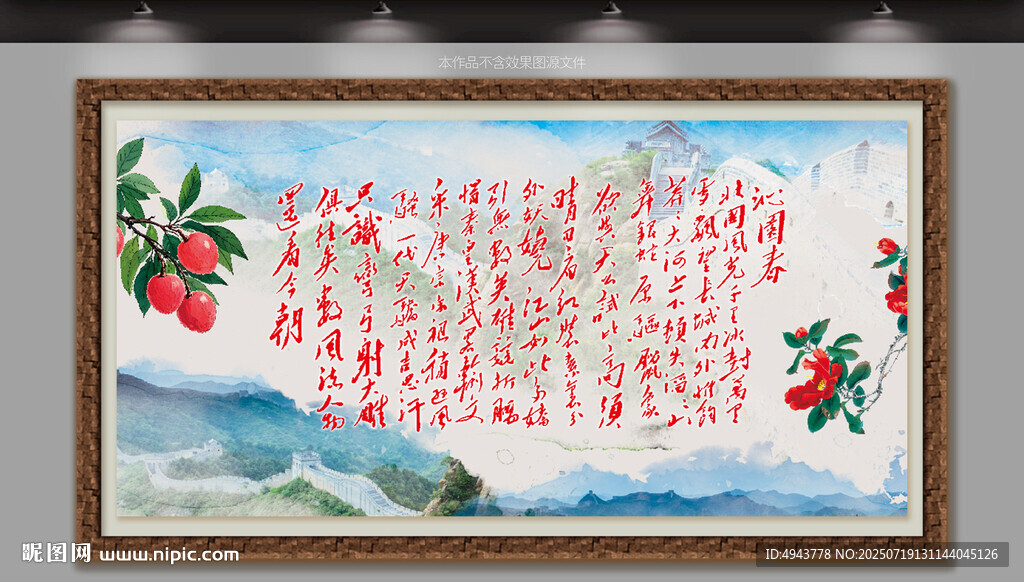 本作品不含效果图源文件
沁園春
北国風光千里冰封萬里
雪飄望長城内外惟餘
莽々大河上下頓失滔々山
舞銀蛇原驅臘象
欲與天公試比高須
晴日看红裝素裹分
外妖嬈江山如此多嬌
引無數英雄競折腰
惜秦皇漢武略輸文
采唐宗宋祖稍遜風
騷一代天驕成吉思汗
只識彎弓射大雕
俱往矣數風流人物
還看今朝
昵图网 www.nipic.com
ID:4943778 NO:20250719131144045126